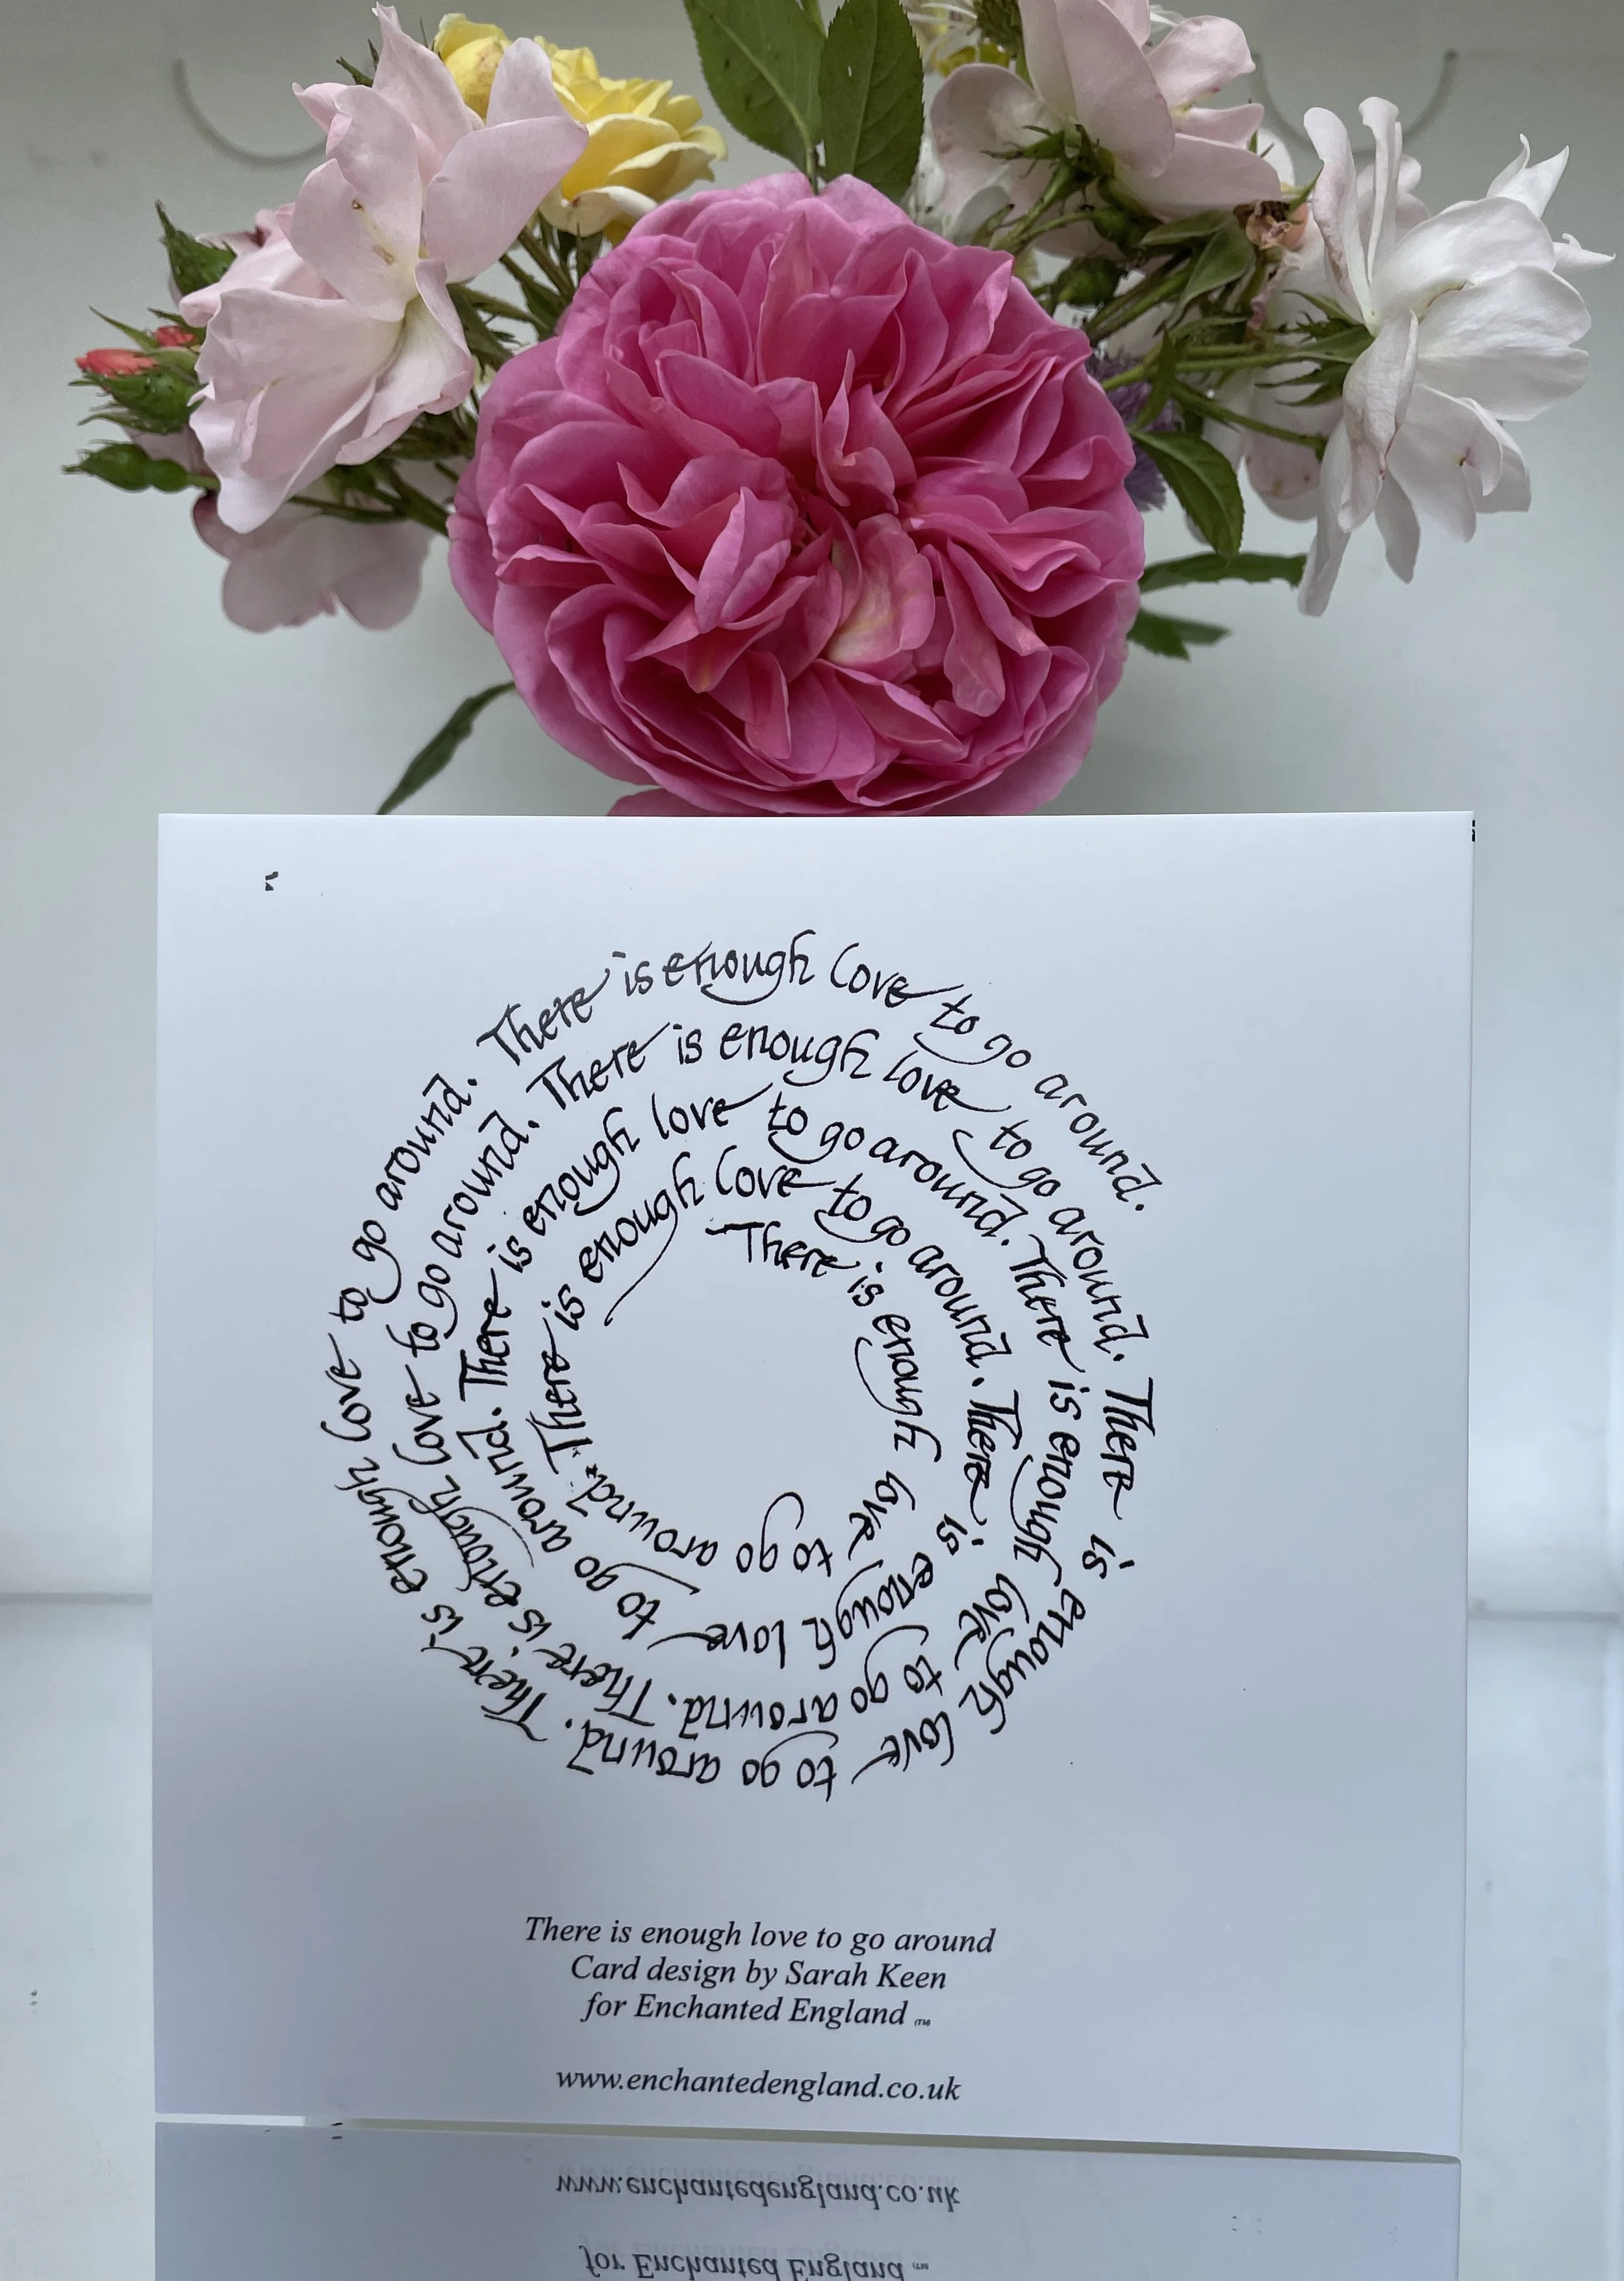 There is enough love to go around.
There is enough love to go around.
There is enough love to go around.
There is enough love to go around.
There is enough love to go around.
There is enough love to go around.
There is enough love to go around.
There is enough love to go around.
There is enough love to go around.
There is enough love to go around.
There is enough love to go around
Card design by Sarah Keen
for Enchanted England (TM)
www.enchantedengland.co.uk